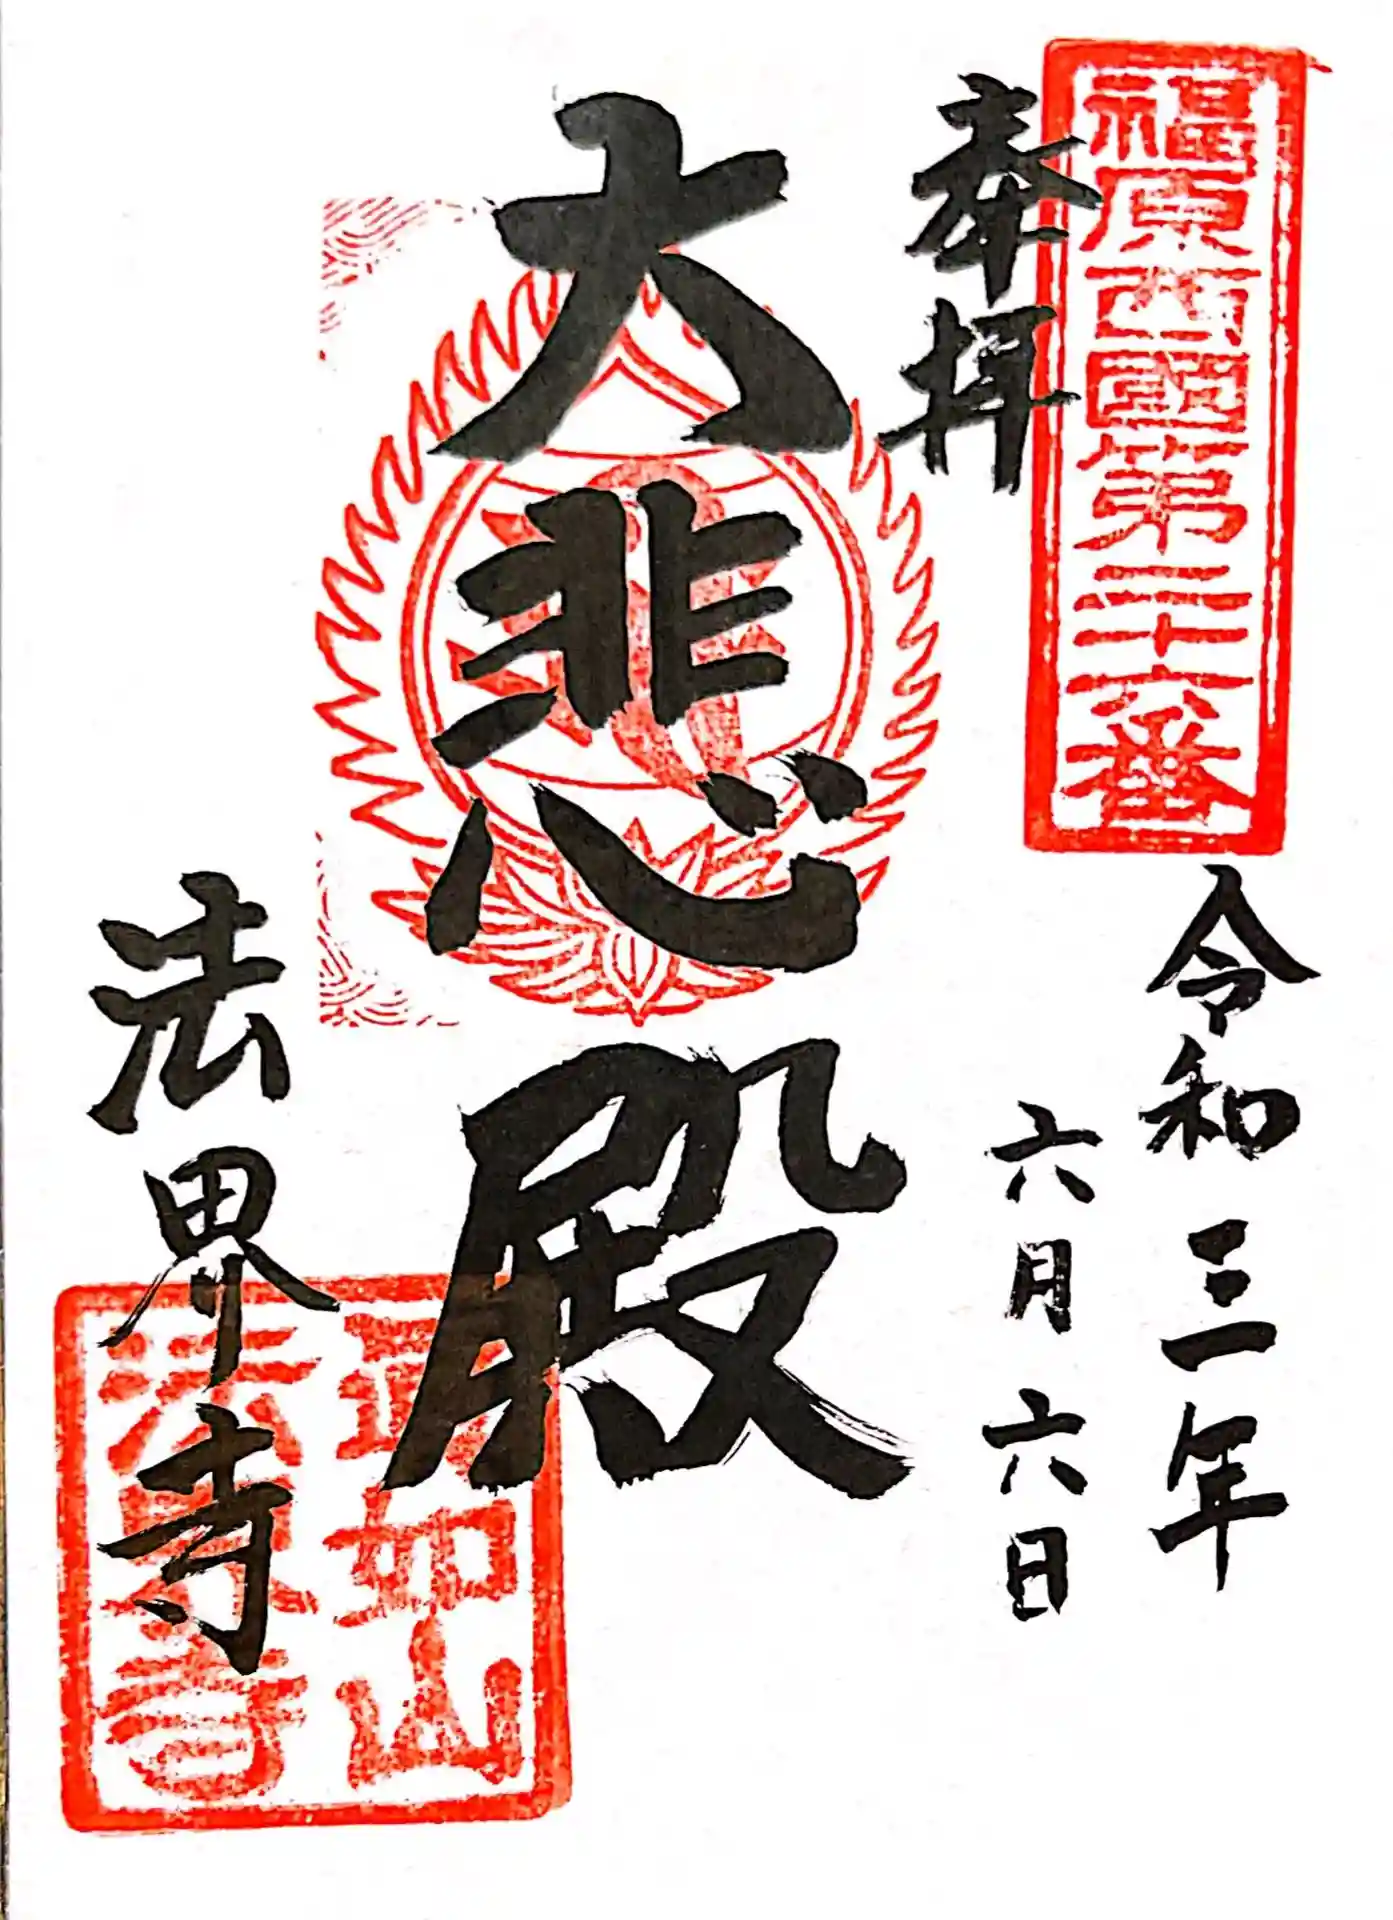 福原西國第二十六番
奉拝
令和三年
六月六日
大悲殿
法界寺
正如山
法界寺